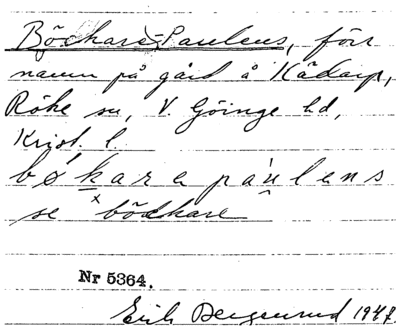 Böckare-Paulens, förr
namn på gård å Kådarp,
Röke sn, V. Göinge hd,
Krist. l.
bøkara páulens
se böckare
Nr 5364.
Erik 1947.